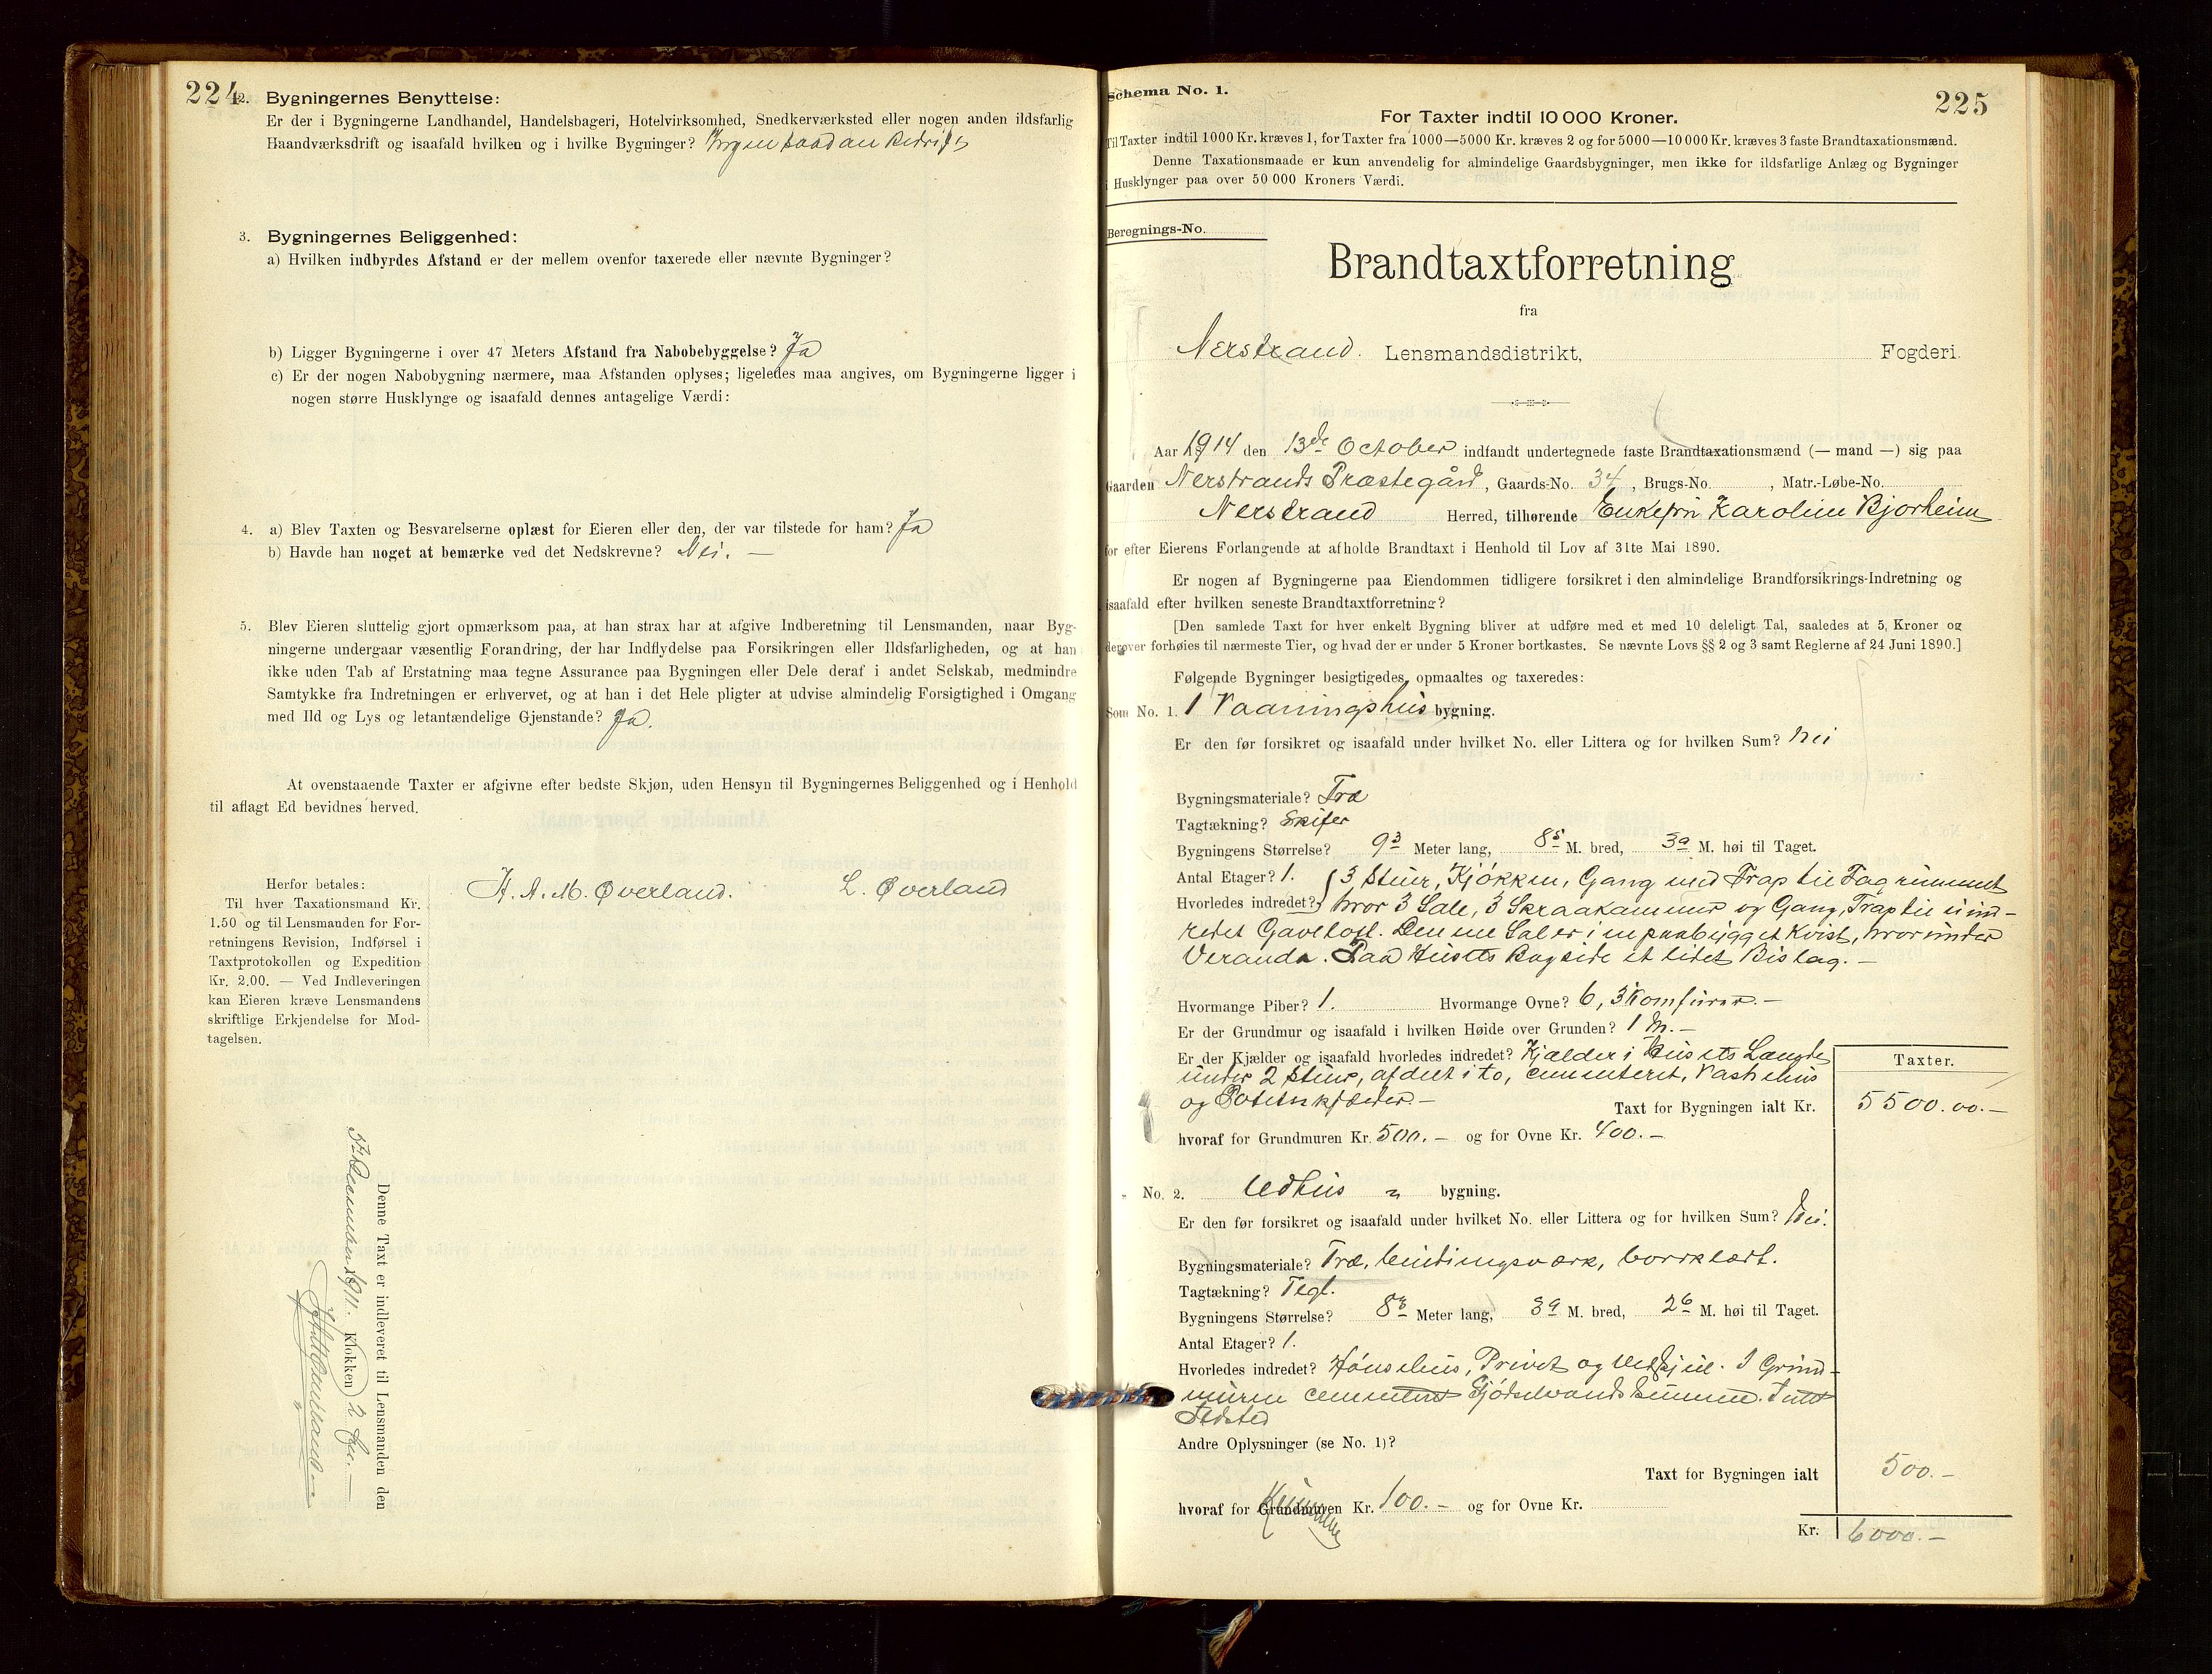 224
2. Bygningernes Benyttelse:
Er der i Bygningerne Landhandel, Handelsbageri, Hotelvirksomhed, Snedkerværksted eller nogen anden ildsfarlig
Haandværksdrift og isaafald hvilken og i hvilke Bygninger? Ingen saadan Bedrift
3. Bygningernes Beliggenhed:
a) Hvilken indbyrdes Afstand er der mellem ovenfor taxerede eller nævnte Bygninger?
b) Ligger Bygningerne i over 47 Meters Afstand fra Nabobebyggelse? Ja
c) Er der nogen Nabobygning nærmere, maa Afstanden oplyses; ligeledes maa angives, om Bygningerne ligger i
nogen større Husklynge og isaafald dennes antagelige Værdi:
4. a) Blev Taxten og Besvarelserne oplæst for Eieren eller den, der var tilstede for ham? Ja
b) Havde han noget at bemærke ved det Nedskrevne? Nei. —
5. Blev Eieren sluttelig gjort opmærksom paa, at han strax har at afgive Indberetning til Lensmanden, naar Byg-
ningerne undergaar væsentlig Forandring, der har Indflydelse paa Forsikringen eller Ildsfarligheden, og at han
ikke uden Tab af Erstatning maa tegne Assurance paa Bygningen eller Dele deraf i andet Selskab, medmindre
Samtykke fra Indretningen er erhvervet, og at han i det Hele pligter at udvise almindelig Forsigtighed i Omgang
med Ild og Lys og letantændelige Gjenstande? Ja.
At ovenstaaende Taxter er afgivne efter bedste Skjøn, uden Hensyn til Bygningernes Beliggenhed og i Henhold
til aflagt Ed bevidnes herved.
H. A. M. Øverland. L. Øverland
Herfor betales:
Til hver Taxationsmand Kr.
1.50 og til Lensmanden for For-
retningens Revision, Indførsel i
Taxtprotokollen og Expedition
Kr. 2.00. — Ved Indleveringen
kan Eieren kræve Lensmandens
skriftlige Erkjendelse for Mod-
tagelsen.
Denne Taxt er indleveret til Lensmanden den
5te December 1911. Klokken 2 Em. —
225
Schema No. 1.
For Taxter indtil 10 000 Kroner.
Til Taxter indtil 1000 Kr. kræves 1, for Taxter fra 1000—5000 Kr. kræves 2 og for 5000—10 000 Kr. kræves 3 faste Brandtaxationsmænd.
Denne Taxationsmaade er kun anvendelig for almindelige Gaardsbygninger, men ikke for ildsfarlige Anlæg og Bygninger
i Husklynger paa over 50 000 Kroners Værdi.
Beregnings-No.
Brandtaxtforretning
fra
Nerstrand. Lensmandsdistrikt, Fogderi.
Aar 1914 den 13de October indfandt undertegnede faste Brandtaxationsmænd (— mand —) sig paa
Gaarden Nerstrands Præstegård, Gaards-No. 34, Brugs-No. , Matr.-Løbe-No.
Nerstrand Herred, tilhørende Enkefru Karoline Bjorheim
for efter Eierens Forlangende at afholde Brandtaxt i Henhold til Lov af 31te Mai 1890.
Er nogen af Bygningerne paa Eiendommen tidligere forsikret i den almindelige Brandforsikrings-Indretning og
isaafald efter hvilken seneste Brandtaxtforretning?
[Den samlede Taxt for hver enkelt Bygning bliver at udføre med et med 10 deleligt Tal, saaledes at 5, Kroner og
derover forhøies til nærmeste Tier, og hvad der er under 5 Kroner bortkastes. Se nævnte Lovs §§ 2 og 3 samt Reglerne af 24 Juni 1890.]
Følgende Bygninger besigtigedes, opmaaltes og taxeredes:
Som No. 1. 1 Vaaningshus bygning.
Er den før forsikret og isaafald under hvilket No. eller Littera og for hvilken Sum? Nei
Bygningsmateriale? Træ
Tagtækning? Skifer
Bygningens Størrelse? 9 3 Meter lang, 8 5 M. bred, 3 9 M. høi til Taget.
Antal Etager? 1. 3 Stuer, Kjøkken, Gang med Trap til Tagrummet
Hvorledes indredet? hvor 3 Sale, 3 Skraakammer og Gang, Trap til uind-
redet Gavelloft. Den ene Sal er i en paabygget Kvist, hvorunder
Veranda. Paa Husets Bagside et lidet Bislag. —
Hvormange Piber? 1. Hvormange Ovne? 6, 3 Komfurer. —
Er der Grundmur og isaafald i hvilken Høide over Grunden? 1 M. —
Er der Kjælder og isaafald hvorledes indredet? Kjælder i Husets Længde
under 2 Stuer, afdelt i to, cementeret, Vaskehus
og Poteteskjælder. —
Taxter.
Taxt for Bygningen ialt Kr. 5500.00. —
hvoraf for Grundmuren Kr. 500. — og for Ovne Kr. 400. —
" No. 2. Udhus " bygning.
Er den før forsikret og isaafald under hvilket No. eller Littera og for hvilken Sum? Nei.
Bygningsmateriale? Træ, bindingsværk, bordklædt.
Tagtækning? Tegl.
Bygningens Størrelse? 8 3 Meter lang, 3 9 M. bred, 2 6 M. høi til Taget.
Antal Etager? 1.
Hvorledes indredet? Hønsehus, Privet og Vedskjul. I Grund-
muren cementeret Gjødselvandskumme. Intet
Ildsted
Andre Oplysninger (se No. 1)?
Taxt for Bygningen ialt 500. —
hvoraf for Grundmuren Kummen Kr. 100. — og for Ovne Kr.
Kr. 6000. —